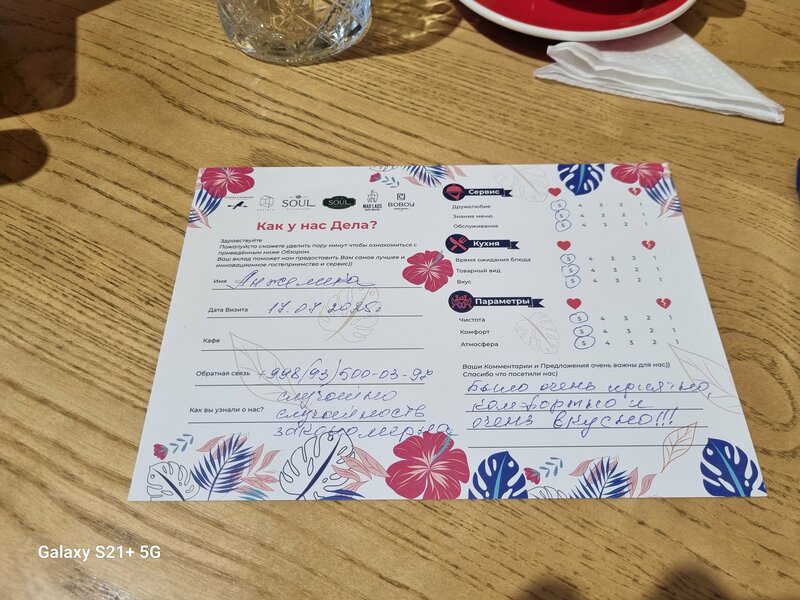 SOUL
SOUL
MAD LADS
BOBOU
Как у нас Дела?
Здравствуйте
Пожалуйста сможете уделить пару минут чтобы ознакомиться с
приведённым ниже Обзором.
Ваш вклад поможет нам предоставить Вам самое лучшее и
инновационное гостеприимство и сервис))
Имя Анжелина
Дата Визита 17.07.2025г
Кафе
Обратная связь +998(93)500-03-98
случайно
Как вы узнали о нас? случайность
закономерна
Сервис
Дружелюбие 5 4 3 2 1
Знание меню 5 4 3 2 1
Обслуживание 5 4 3 2 1
Кухня
Время ожидания блюда 5 4 3 2 1
Товарный вид 5 4 3 2 1
Вкус 5 4 3 2 1
Параметры
Чистота 5 4 3 2 1
Комфорт 5 4 3 2 1
Атмосфера 5 4 3 2 1
Ваши Комментарии и Предложения очень важны для нас))
Спасибо что посетили нас)
Было очень приятно,
комфортно и
очень вкусно!!!
Galaxy S21+ 5G